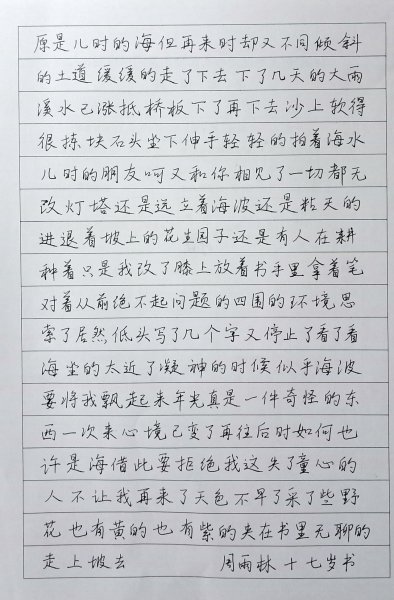 原是儿时的海但再来时却又不同倾斜
的土道缓缓的走了下去下了几天的大雨
溪水已涨抵桥板下了再下去沙上软得
很拣块石头坐下伸手轻轻的拍着海水
儿时的朋友呵又和你相见了一切都无
改灯塔还是远立着海波还是粘天的
进退着坡上的花生园子还是有人在耕
种着只是我改了膝上放着书手里拿着笔
对着从前绝不起问题的四围的环境思
索了居然低头写了几个字又停止了看了看
海坐的太近了凝神的时候似乎海波
要将我飘起来年光真是一件奇怪的东
西一次来心境已变了再往后时如何也
许是海借此要拒绝我这失了童心的
人不让我再来了天色不早了采了些野
花也有黄的也有紫的夹在书里无聊的
走上坡去 周雨林十七岁书